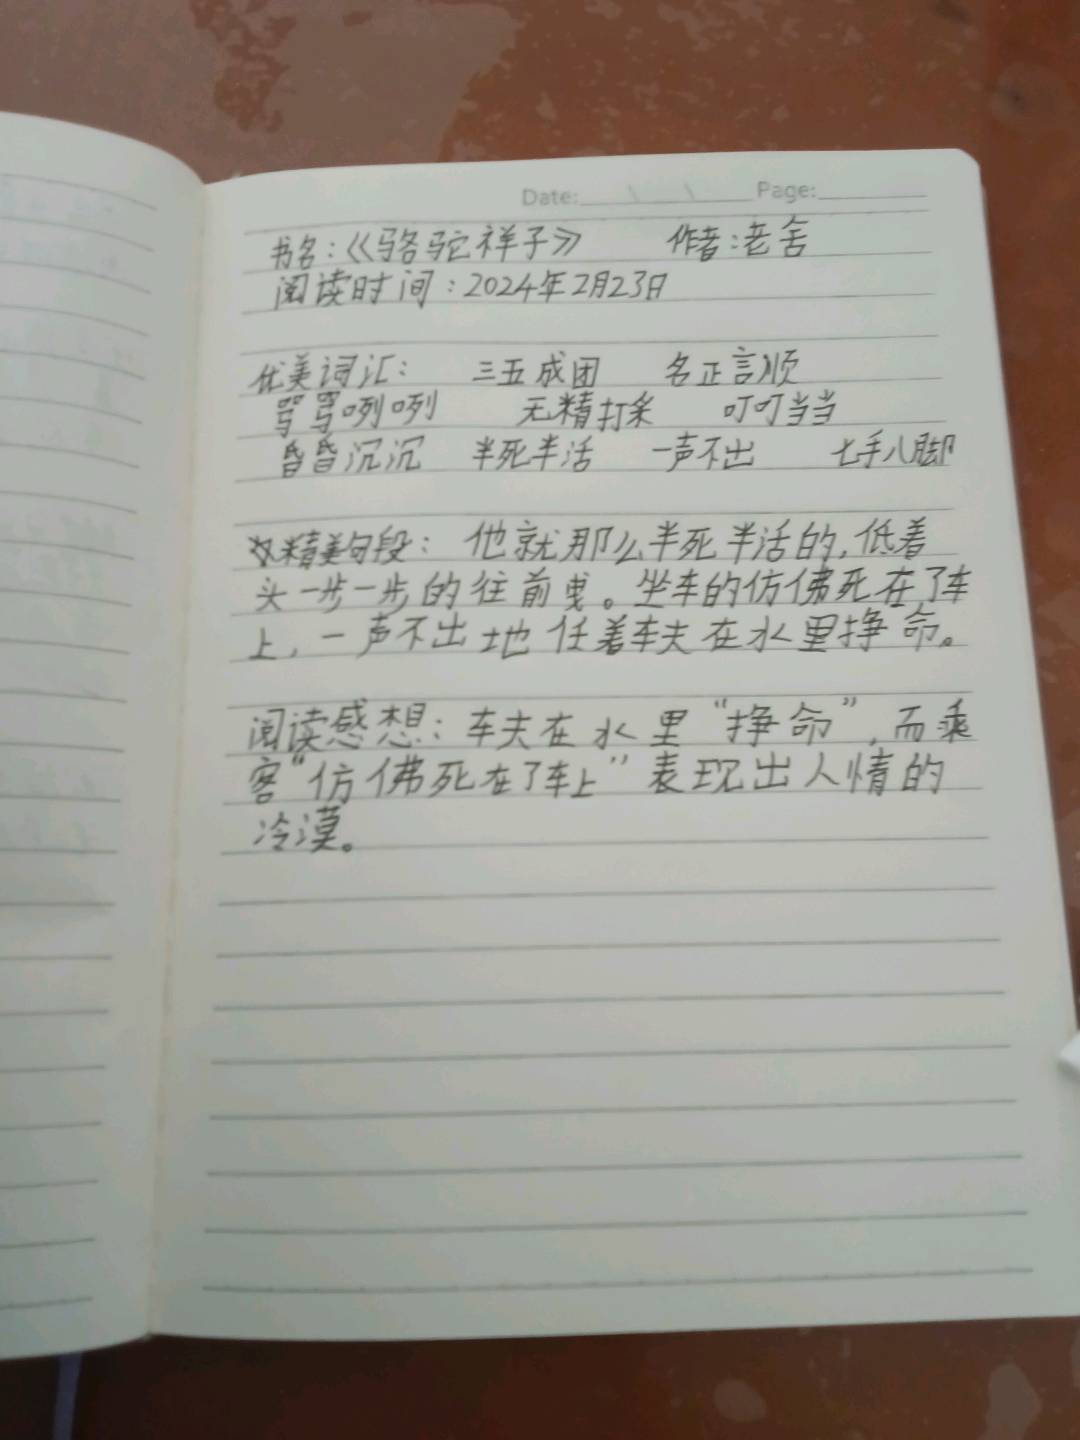 Date: Page:
书名:《骆驼祥子》 作者:老舍
阅读时间:2024年2月23日
优美词汇: 三五成团 名正言顺
骂骂咧咧 无精打采 叮叮当当
昏昏沉沉 半死半活 一声不出 七手八脚
精美句段: 他就那么半死半活的,低着
头一步一步的往前曳。坐车的仿佛死在了车
上,一声不出地任着车夫在水里挣命。
阅读感想:车夫在水里“挣命”,而乘
客“仿佛死在了车上”表现出人情的
冷漠。